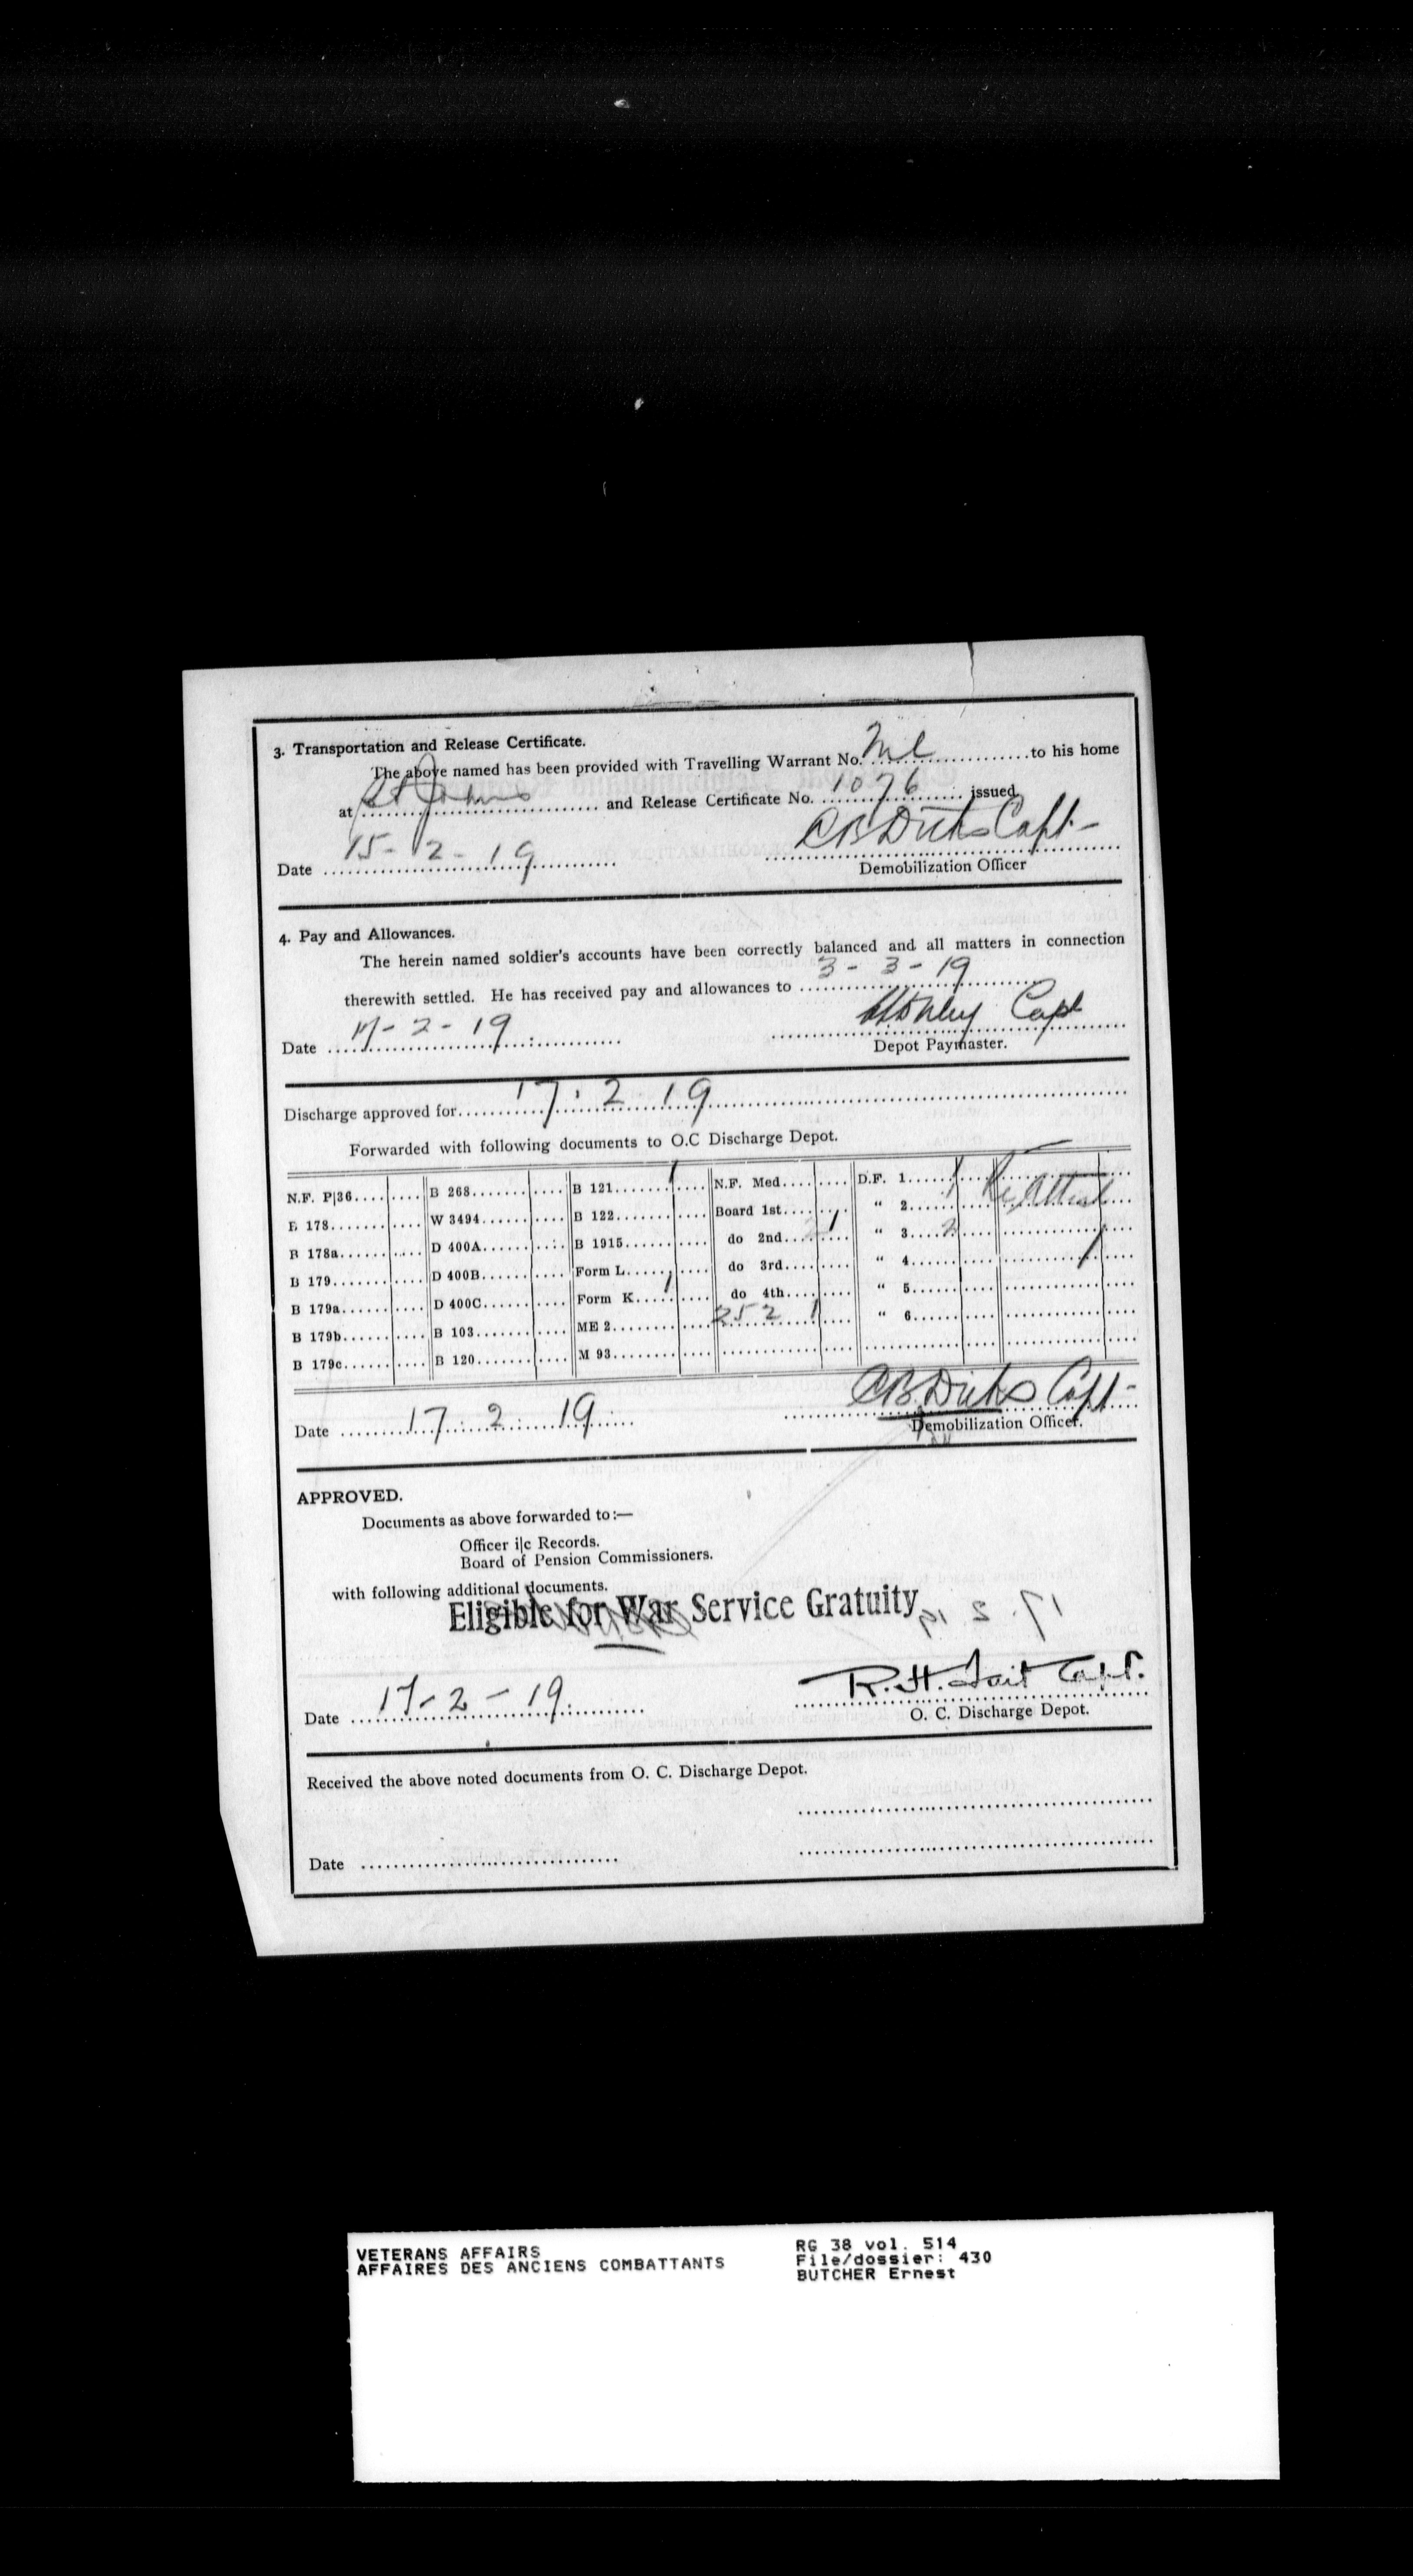 3. Transportation and Release Certificate.
The above named has been provided with Travelling Warrant No. Nil to his home
at St Johns and Release Certificate No. 1076 issued
CB Dicks Capt-
Date 15-2-19
Demobilization Officer
4. Pay and Allowances.
The herein named soldier's accounts have been correctly balanced and all matters in connection
therewith settled. He has received pay and allowances to 3-3-19
Capt
Date 17-2-19
Depot Paymaster.
Discharge approved for 17.2.19
Forwarded with following documents to O.C Discharge Depot.
N.F. P|36.... B 268.... B 121.... 1 N.F. Med.... D.F. 1.... 1
B 178.... W 3494.... B 122.... Board 1st.... 1 " 2....
B 178a.... D 400A.... B 1915.... do 2nd.... " 3.... 2
B 179.... D 400B.... Form L.... do 3rd.... " 4.... 1
B 179a.... D 400C.... Form K.... 1 do 4th.... " 5....
B 179b.... B 103.... ME 2.... 252 1 " 6....
B 179c.... B 120.... M 93....
CB. Dicks Capt-
Date 17.2.19
Demobilization Officer.
APPROVED.
Documents as above forwarded to:—
Officer i|c Records.
Board of Pension Commissioners.
with following additional documents.
Eligible for War Service Gratuity
17.2.19
R.H. Tait Capt.
Date 17-2-19
O. C. Discharge Depot.
Received the above noted documents from O. C. Discharge Depot.
Date
VETERANS AFFAIRS
AFFAIRES DES ANCIENS COMBATTANTS
RG 38 vol. 514
File/dossier: 430
BUTCHER Ernest